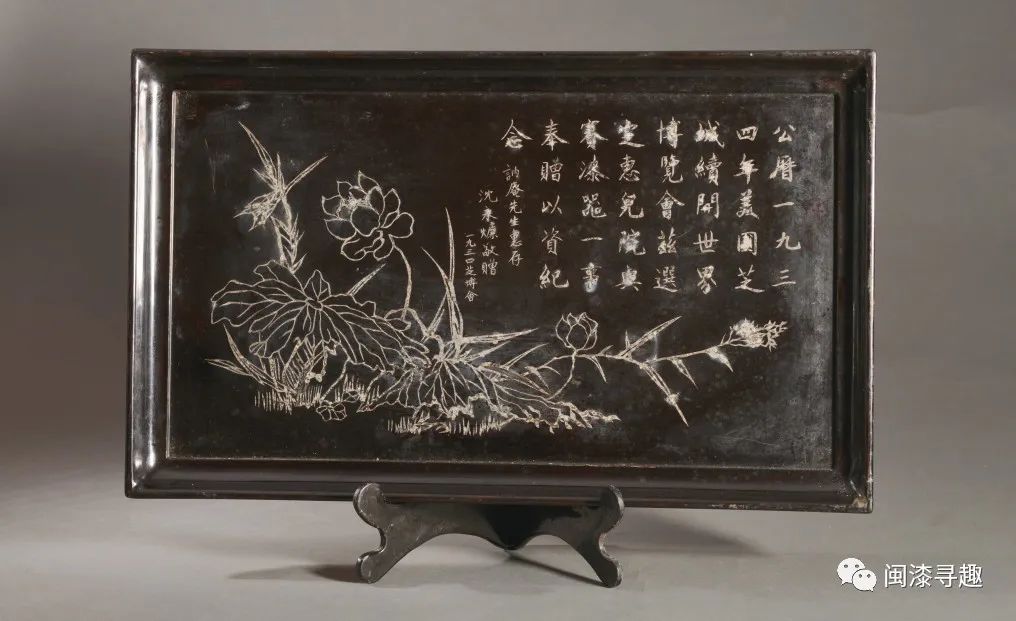 公曆一九三
四年美國芝
城續開世界
博覽會茲選
定惠兒院與
賽漆器一事
奉贈以資紀
念
訥庵先生惠存
沈敬贈
一九三四芝博會
闽漆寻趣